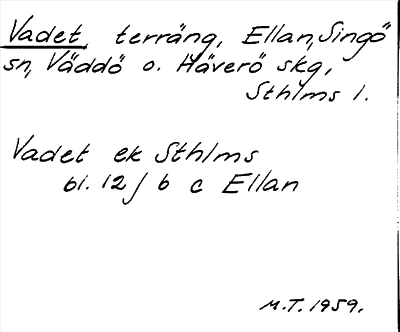 Vadet, terräng, Ellan, Singö
sn, Väddö o. Häverö skg,
Sthlms l.
Vadet ek Sthlms
bl. 12 j b c Ellan
M.T. 1959.